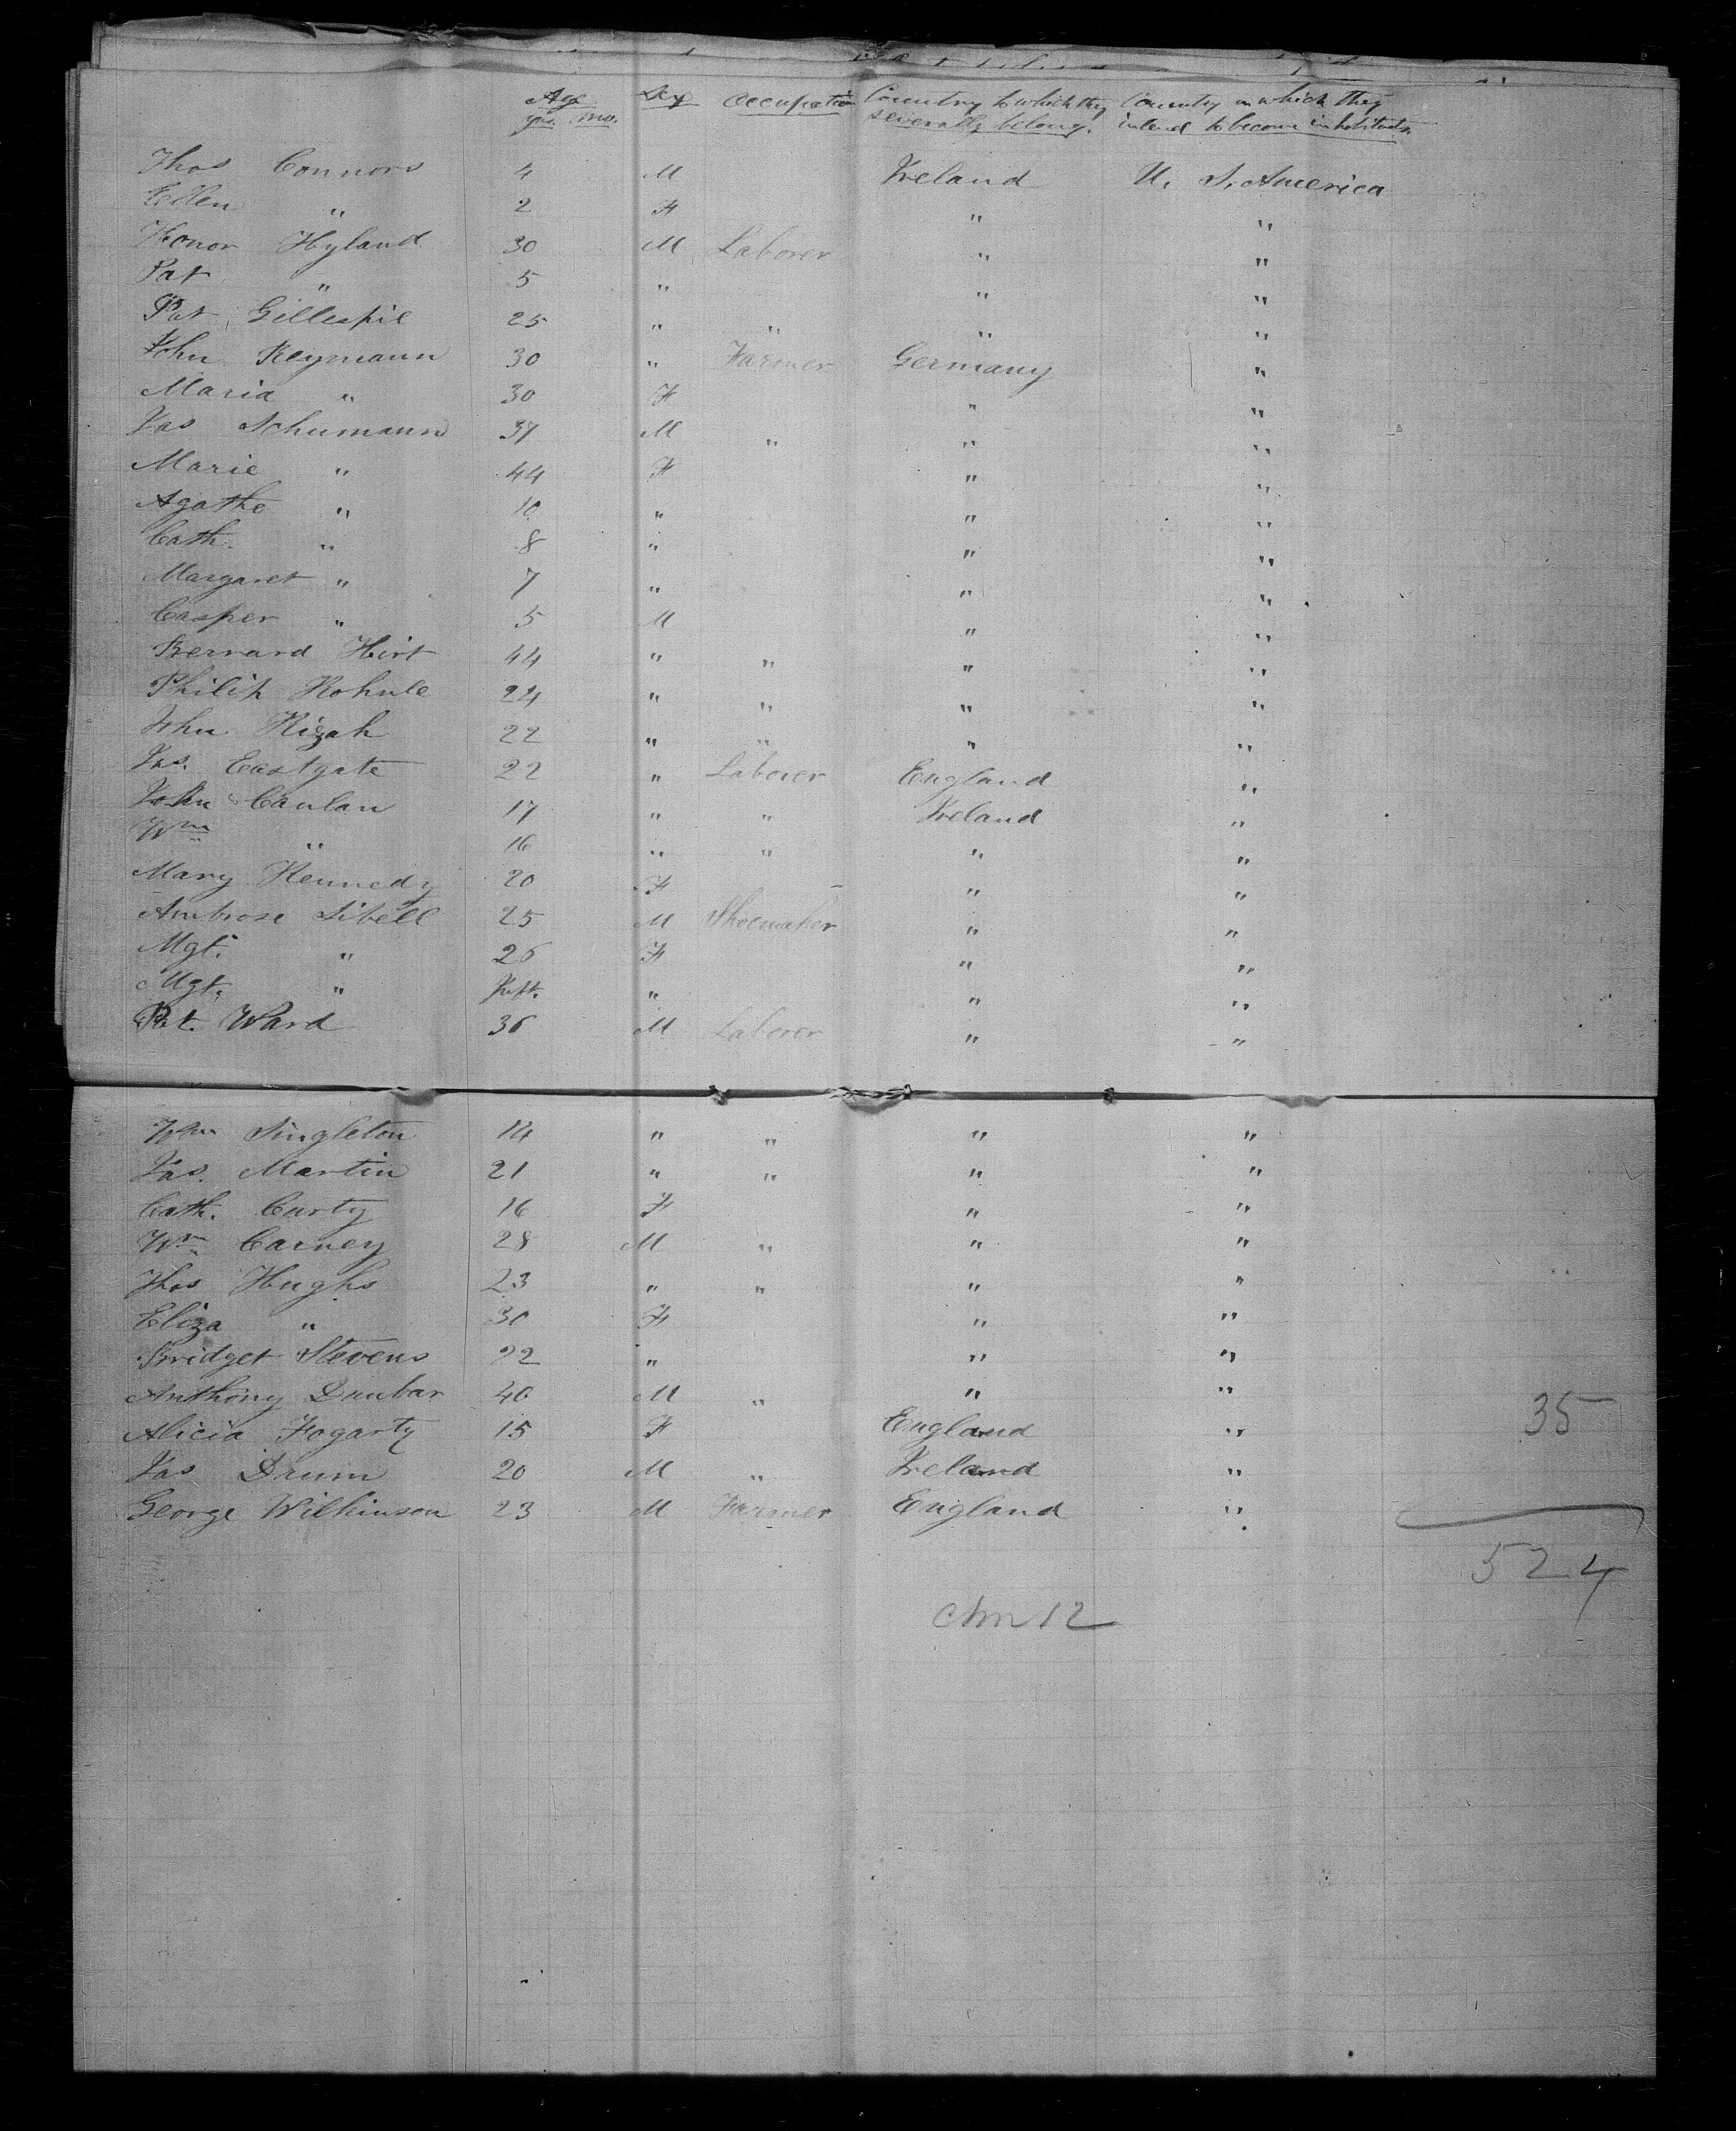 Age Sex Occupation Country to which they Country in which they
yrs. mos. severally belong. intend to become inhabitants.
Thos Connors 4 M Ireland U. S. America
Ellen " 2 F " "
Honor Hyland 30 M Laborer " "
Pat " 5 " " "
Pat Gillespie 25 " " " "
John Reymann 30 " Farmer Germany "
Maria " 30 F " "
Jas Schumann 37 M " " "
Marie " 44 F " "
Agathe " 10 " " "
Cath. " 8 " " "
Margaret " 7 " " "
Casper " 5 M " "
Bernard Hirt 44 " " " "
Philip 24 " " " "
John 22 " " " "
Jas. Eastgate 22 " Laborer England "
John Canlan 17 " " Ireland "
Wm " 16 " " " "
Mary Kennedy 20 F " "
Ambrose Sibell 25 M Shoemaker " "
Mgt. " 26 F " "
Mgt. " Inft. " " "
Pat. Ward 36 M Laborer " "
Wm Singleton 14 " " " "
Jas. Martin 21 " " " "
Cath. Curty 16 F " "
Wm Carney 28 M " " "
Thos Hughs 23 " " " "
Eliza " 30 F " "
Bridget Stevens 22 " " "
Anthony Dunbar 40 M " " "
35
Alicia Fogarty 15 F England "
Jas Drum 20 M " Ireland "
George Wilkinson 23 M Farmer England "
524
12